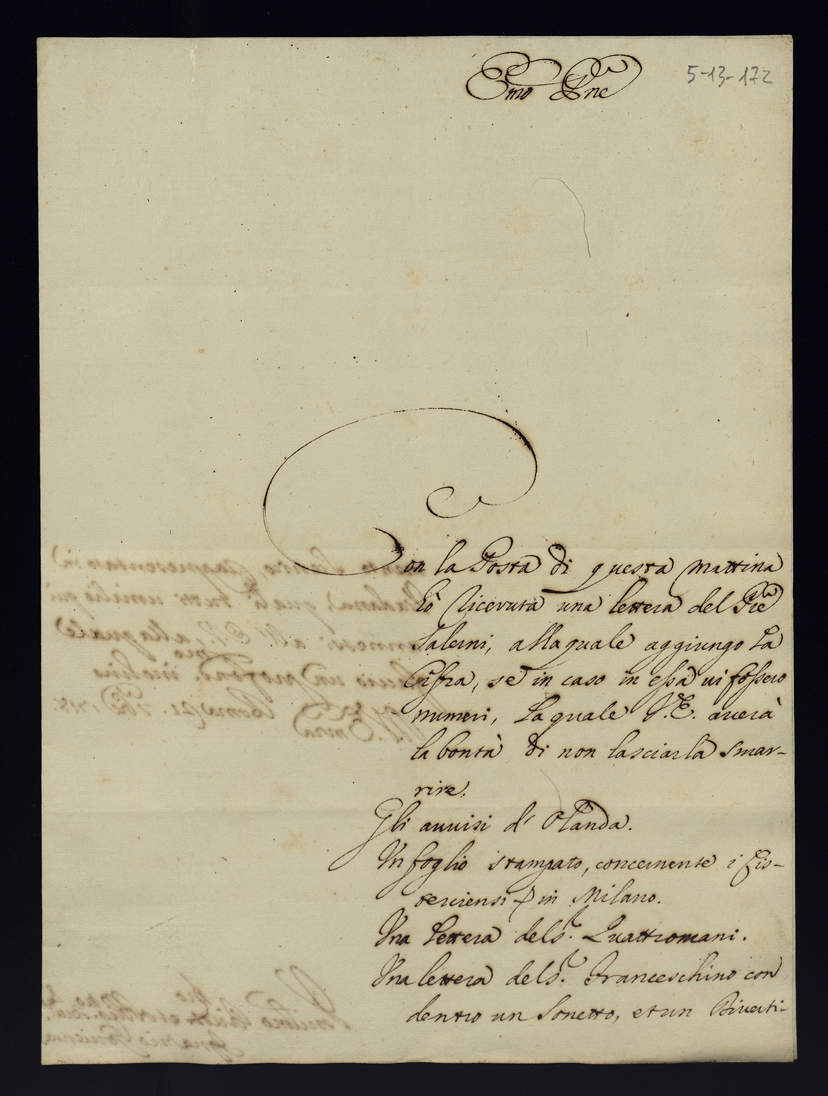 5-13-172
Emo Pne
Con la Posta di questa mattina
hò ricevuta una lettera del Pre
Salerni, alla quale aggiungo la
Cifra, se in caso in essa vi fossero
numeri, la quale V.E. averà
la bontà di non lasciarla smar-
rire.
Gli avvisi d' Olanda.
Un foglio stampato, concernente i Cis-
terciensi in Milano.
Una lettera del S.r Quattromani.
Una lettera del S.r Franceschino con
dentro un Sonetto, et un Diverti-